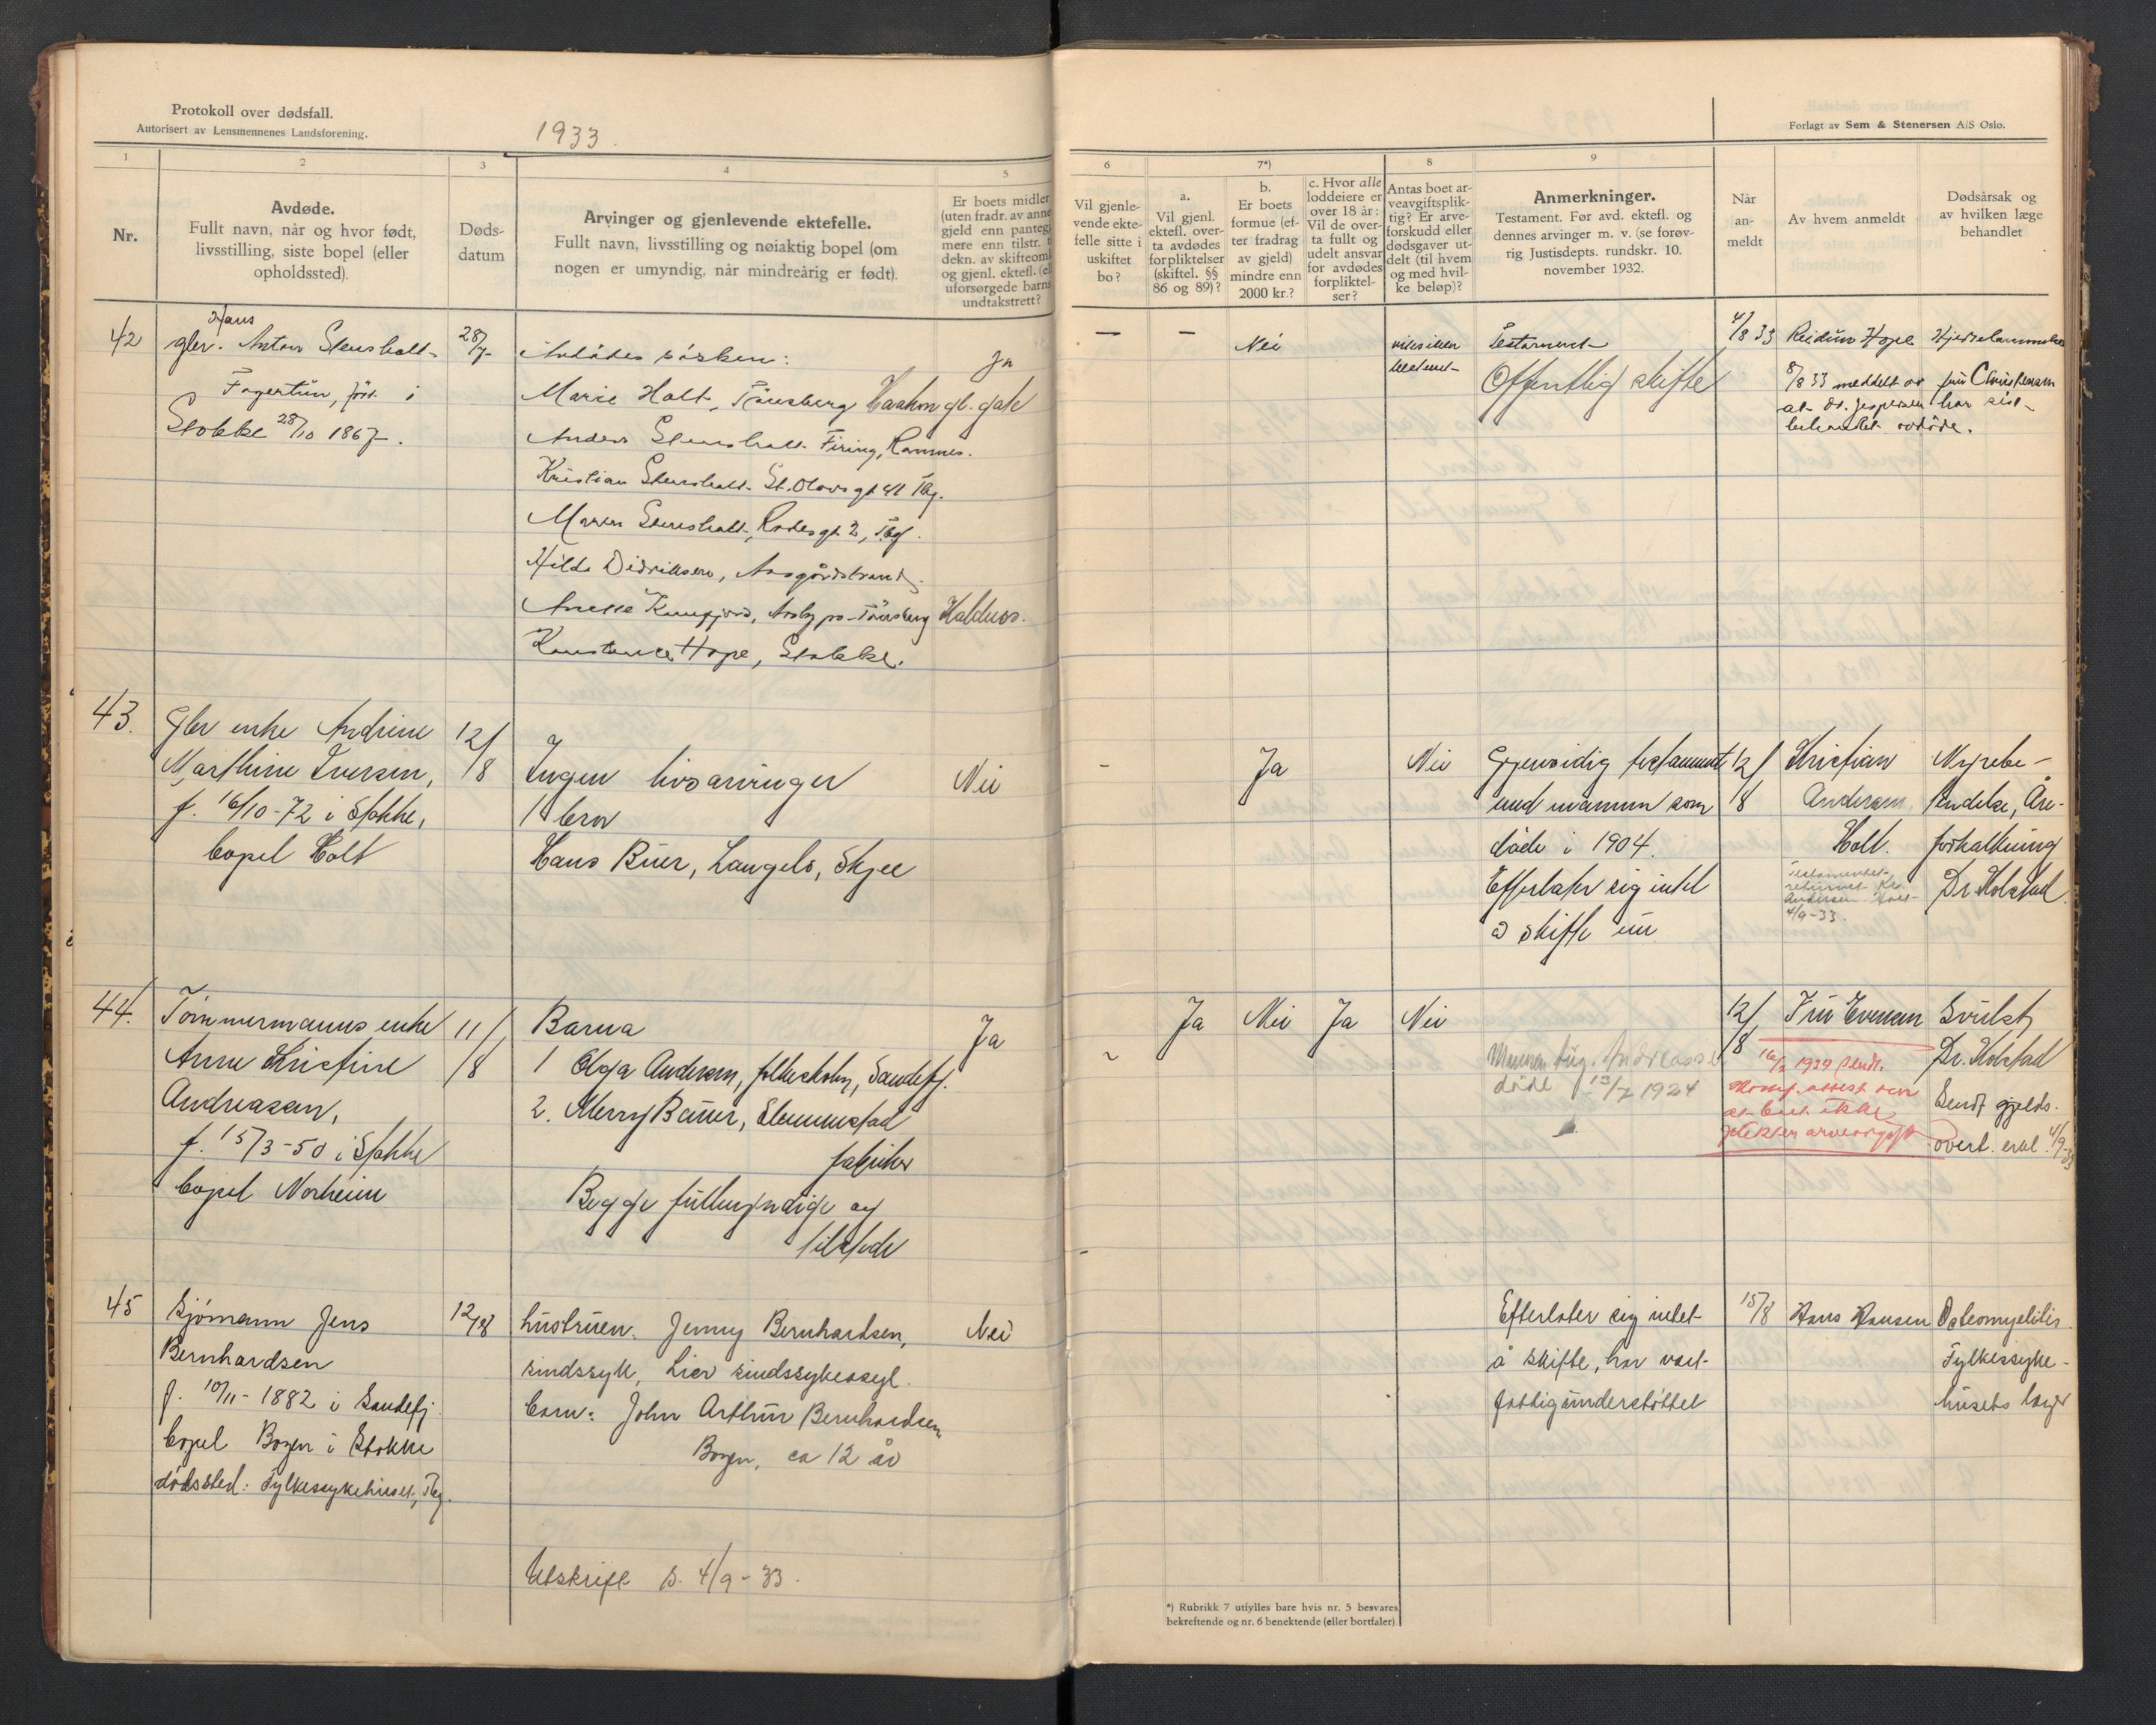 Protokoll over dødsfall.
Autorisert av Lensmennenes Landsforening.
1933.
1
2
3
4
5
Nr.
Avdøde.
Fullt navn, når og hvor født,
livsstilling, siste bopel (eller
opholdssted).
Døds-
datum
Arvinger og gjenlevende ektefelle.
Fullt navn, livsstilling og nøiaktig bopel (om
nogen er umyndig, når mindreårig er født).
Er boets midler
(uten fradr. av anne
gjeld enn panteg
mere enn tilstr. t
dekn. av skifteoml
og gjenl. ektefl. (el
uforsørgede barns
undtakstrett?
42
Hans
glbr. Anton Stensholt
Fagertun, født i
Stokke 28/10 1867.
28/7
Avdødes søsken:
Ja
Marie Holt, Tønsberg Haakon gl. gate
Anders Stensholt Firing, Ramnes.
Kristian Stensholt St. Olavsgt 41 Tbg.
Maren Stensholt, Rodesgt. 2, Tbg.
Hilda Didriksen, Aasgårdstrand
Anette, Aasby pr. Tønsberg
Konstance Hope, Stokke.
43.
Gbr enke Andrine
Marthine Iversen,
f. 16/10-72 i Stokke,
bopel Holt
12/8
Ingen livsarvinger
Nei
1 bror
Hans Buer, Langelo, Skjee
44.
Tømmermanns enke
Anne Kristine
Andreasen,
f. 15/3-50 i Stokke
bopel Norheim
11/8
Barna
Ja
1 Olga Andersen, Sandefj.
2. Merry Bauer, Slemmestad
fabrikker
Begge fullmyndige og
tilstede
45
Sjømann Jens
Bernhardsen
f. 10/11-1882 i Sandefj.
bopel Bogen i Stokke
dødssted: Fylkessykehuset, Tbg.
12/8
hustruen. Jenny Bernhardsen,
Nei
sindssyk, Lier sindssykeasyl.
barn: John Arthur Bernhardsen
Bogen, ca 12 år
Utskrift s. 4/9-33.
Forlagt av Sem & Stenersen A/S Oslo.
6
7*)
8
9
Vil gjenle-
vende ekte-
felle sitte i
uskiftet
bo?
a.
Vil gjenl.
ektefl. over-
ta avdødes
forpliktelser
(skiftel. §§
86 og 89)?
b.
Er boets
formue (ef-
ter fradrag
av gjeld)
mindre enn
2000 kr.?
c. Hvor alle
loddeiere er
over 18 år:
Vil de over-
ta fullt og
udelt ansvar
for avdødes
forpliktel-
ser?
Antas boet ar-
veavgiftsplik-
tig? Er arve-
forskudd eller
dødsgaver ut-
delt (til hvem
og med hvil-
ke beløp)?
Anmerkninger.
Testament. Før avd. ektefl. og
dennes arvinger m. v. (se forøv-
rig Justisdepts. rundskr. 10.
november 1932.
Når
an-
meldt
Av hvem anmeldt
Dødsårsak og
av hvilken læge
behandlet
—
—
Nei
Testament
Offentlig skifte
4/8 33
Reidun Hope
8/8 33 meddelt av fru Christensen
at dr. Jespersen har sist
behandlet avdøde.
-
Ja
Nei
Gjensidig testament
med mannen som
døde i 1904.
Efterlater sig intet
å skifte nu
12/8
Kristian
Andersen,
Holt.
Testamentet
returnert Kr.
Andersen Holt
4/9-33.
Nyrebe-
tendelse, Åre-
forkalkning
Dr. Holstad.
Ja
Nei
Ja
Nei
Mannen Andreassen
døde 13/7 1924
12/8
Fru Evensen
16/2 1939 sendt
attest over
at boet ikke
arveavgift
Svulst
Dr. Holstad
Sendt gjelds-
overt. erkl. 4/9-33
Efterlater sig intet
å skifte, har vært
fattigunderstøttet
15/8
Hans Hansen
Osteomyelitis.
Fylkessyke-
husets læge
*) Rubrikk 7 utfylles bare hvis nr. 5 besvares
bekreftende og nr. 6 benektende (eller bortfaler).